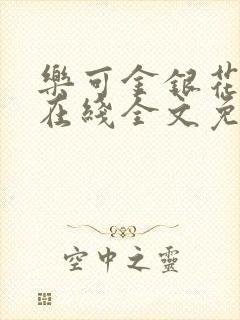 樂可金銀花
在綫全文免
空中之靈